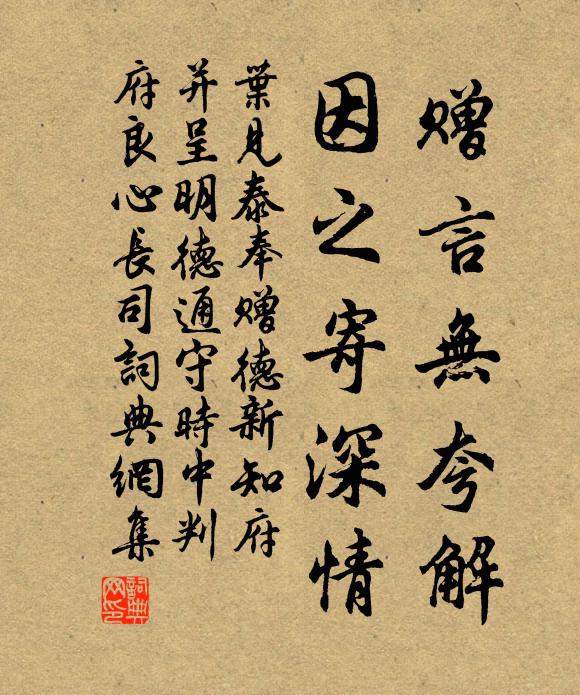 贈言無夸解
因之寄深情
葉見泰奉贈德新知府
并呈明德通守時中判
府良心長司詞典網集
詞典
网印